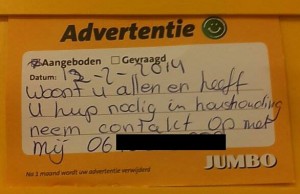 Advertentie
Aangeboden Gevraagd
Datum: 12-2-2014
Woont u allen en heeft
U hulp nodig in houshouding
neem contakt op met
mij 06
JUMBO
Na 1 maand wordt uw advertentie verwijderd